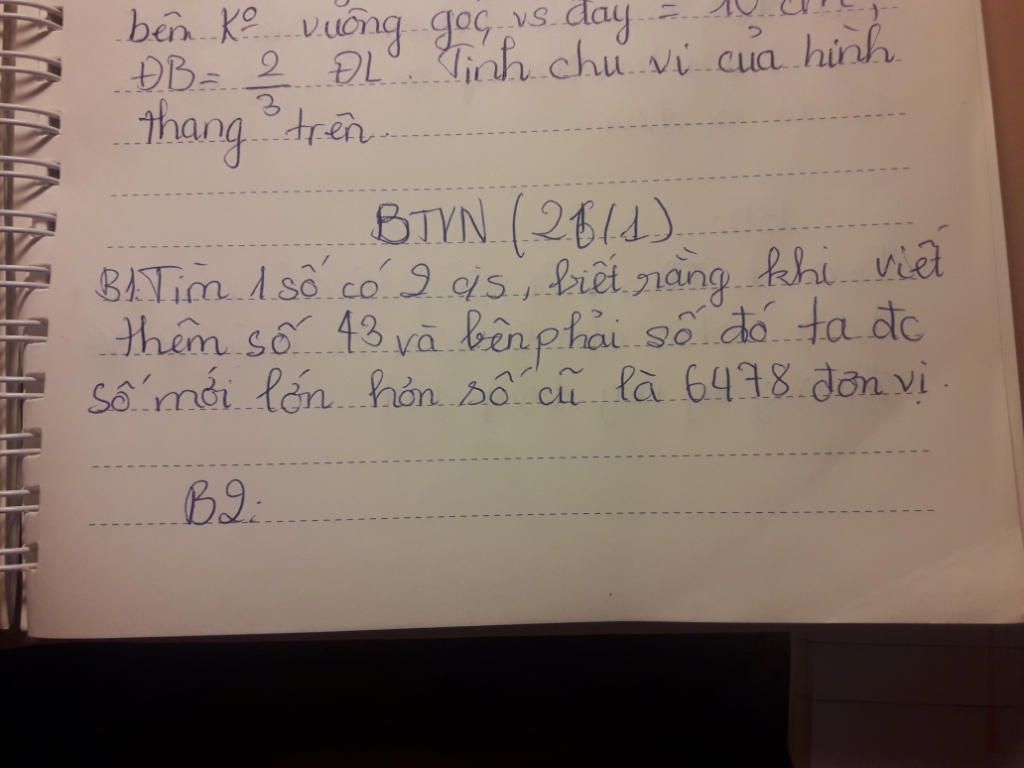 bên kº vuông góc vs đáy = 10 cm,
ĐB = 2/3 ĐL. Tính chu vi của hình
thang trên.
BTVN (26/1)
B1. Tìm 1 số có 2 c/s, biết rằng khi viết
thêm số 43 và bên phải số đó ta đc
số mới lớn hơn số cũ là 6478 đơn vị.
B2: